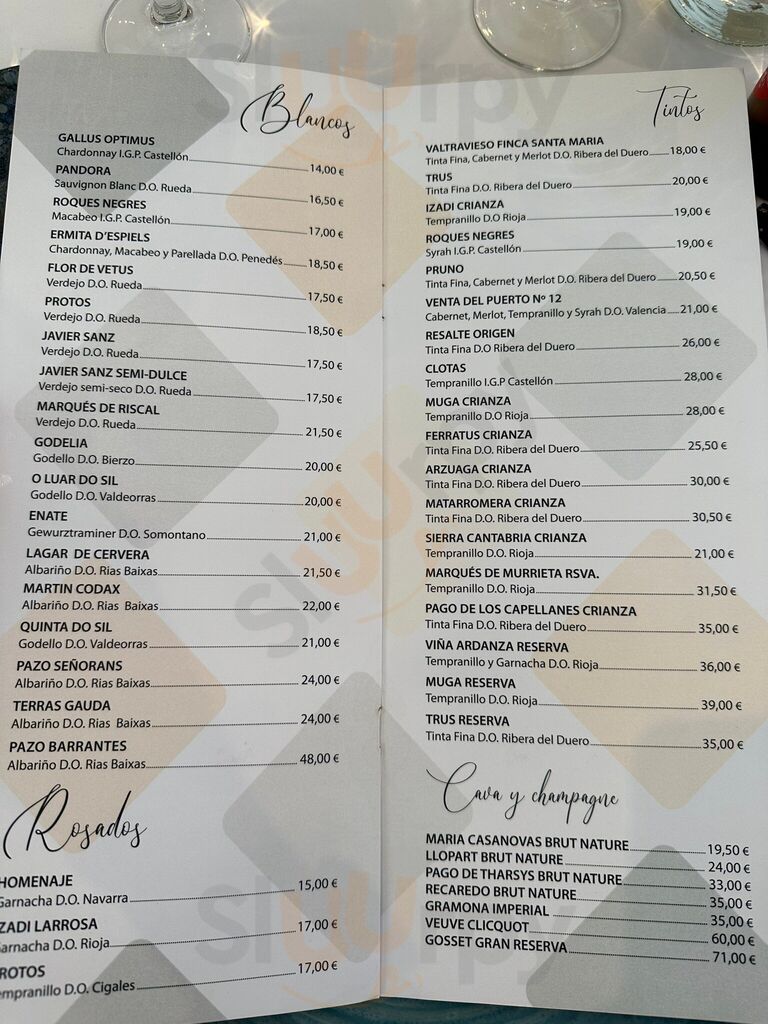 Blancos
GALLUS OPTIMUS
Chardonnay I.G.P. Castellón 14,00 €
PANDORA
Sauvignon Blanc D.O. Rueda 16,50 €
ROQUES NEGRES
Macabeo I.G.P. Castellón 17,00 €
ERMITA D'ESPIELS
Chardonnay, Macabeo y Parellada D.O. Penedés 18,50 €
FLOR DE VETUS
Verdejo D.O. Rueda 17,50 €
PROTOS
Verdejo D.O. Rueda 18,50 €
JAVIER SANZ
Verdejo D.O. Rueda 17,50 €
JAVIER SANZ SEMI-DULCE
Verdejo semi-seco D.O. Rueda 17,50 €
MARQUÉS DE RISCAL
Verdejo D.O. Rueda 21,50 €
GODELIA
Godello D.O. Bierzo 20,00 €
O LUAR DO SIL
Godello D.O. Valdeorras 20,00 €
ENATE
Gewurztraminer D.O. Somontano 21,00 €
LAGAR DE CERVERA
Albariño D.O. Rias Baixas 21,50 €
MARTIN CODAX
Albariño D.O. Rias Baixas 22,00 €
QUINTA DO SIL
Godello D.O. Valdeorras 21,00 €
PAZO SEÑORANS
Albariño D.O. Rias Baixas 24,00 €
TERRAS GAUDA
Albariño D.O. Rias Baixas 24,00 €
PAZO BARRANTES
Albariño D.O. Rias Baixas 48,00 €
Rosados
HOMENAJE
Garnacha D.O. Navarra 15,00 €
ZADI LARROSA
arnacha D.O. Rioja 17,00 €
ROTOS
empranillo D.O. Cigales 17,00 €
Tintos
VALTRAVIESO FINCA SANTA MARIA
Tinta Fina, Cabernet y Merlot D.O. Ribera del Duero 18,00 €
TRUS
Tinta Fina D.O. Ribera del Duero 20,00 €
IZADI CRIANZA
Tempranillo D.O Rioja 19,00 €
ROQUES NEGRES
Syrah I.G.P. Castellón 19,00 €
PRUNO
Tinta Fina, Cabernet y Merlot D.O. Ribera del Duero 20,50 €
VENTA DEL PUERTO Nº 12
Cabernet, Merlot, Tempranillo y Syrah D.O. Valencia 21,00 €
RESALTE ORIGEN
Tinta Fina D.O Ribera del Duero 26,00 €
CLOTAS
Tempranillo I.G.P Castellón 28,00 €
MUGA CRIANZA
Tempranillo D.O Rioja 28,00 €
FERRATUS CRIANZA
Tinta Fina D.O. Ribera del Duero 25,50 €
ARZUAGA CRIANZA
Tinta Fina D.O. Ribera del Duero 30,00 €
MATARROMERA CRIANZA
Tinta Fina D.O. Ribera del Duero 30,50 €
SIERRA CANTABRIA CRIANZA
Tempranillo D.O. Rioja 21,00 €
MARQUÉS DE MURRIETA RSVA.
Tempranillo D.O. Rioja 31,50 €
PAGO DE LOS CAPELLANES CRIANZA
Tinta Fina D.O. Ribera del Duero 35,00 €
VIÑA ARDANZA RESERVA
Tempranillo y Garnacha D.O. Rioja 36,00 €
MUGA RESERVA
Tempranillo D.O. Rioja 39,00 €
TRUS RESERVA
Tinta Fina D.O. Ribera del Duero 35,00 €
Cava y champagne
MARIA CASANOVAS BRUT NATURE 19,50 €
LLOPART BRUT NATURE 24,00 €
PAGO DE THARSYS BRUT NATURE 33,00 €
RECAREDO BRUT NATURE 35,00 €
GRAMONA IMPERIAL 35,00 €
VEUVE CLICQUOT 60,00 €
GOSSET GRAN RESERVA 71,00 €
sluurpy
sluurpy
sluurpy